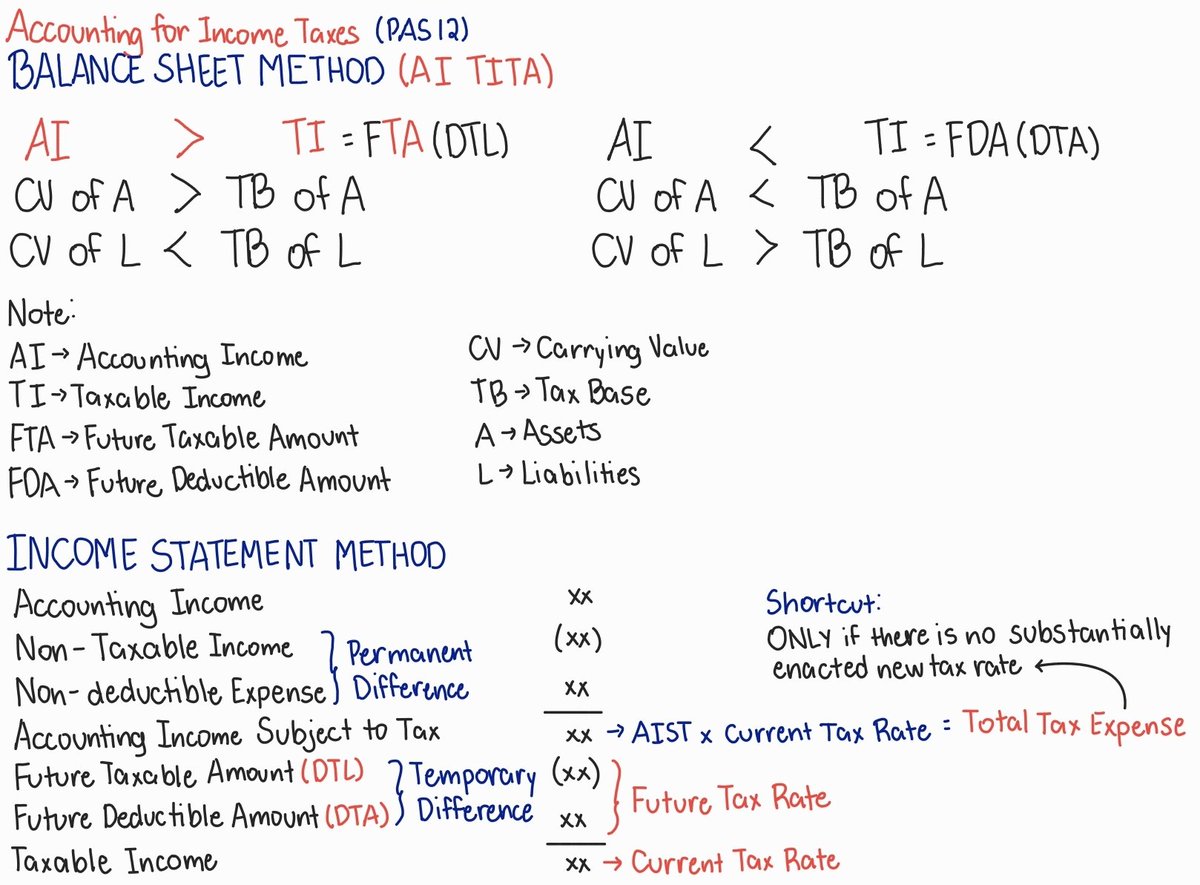 Accounting for Income Taxes (PAS 12)
BALANCE SHEET METHOD (AI TITA)
AI > TI = FTA (DTL)
CV of A > TB of A
CV of L < TB of L
AI < TI = FDA (DTA)
CV of A < TB of A
CV of L > TB of L
Note:
AI → Accounting Income
TI → Taxable Income
FTA → Future Taxable Amount
FDA → Future Deductible Amount
CV → Carrying Value
TB → Tax Base
A → Assets
L → Liabilities
INCOME STATEMENT METHOD
Accounting Income xx
Non-Taxable Income (xx)
Non-deductible Expense xx
Permanent
Difference
Accounting Income Subject to Tax xx → AIST x Current Tax Rate = Total Tax Expense
Shortcut:
ONLY if there is no substantially
enacted new tax rate
Future Taxable Amount (DTL) (xx)
Future Deductible Amount (DTA) xx
Temporary
Difference
Future Tax Rate
Taxable Income xx → Current Tax Rate